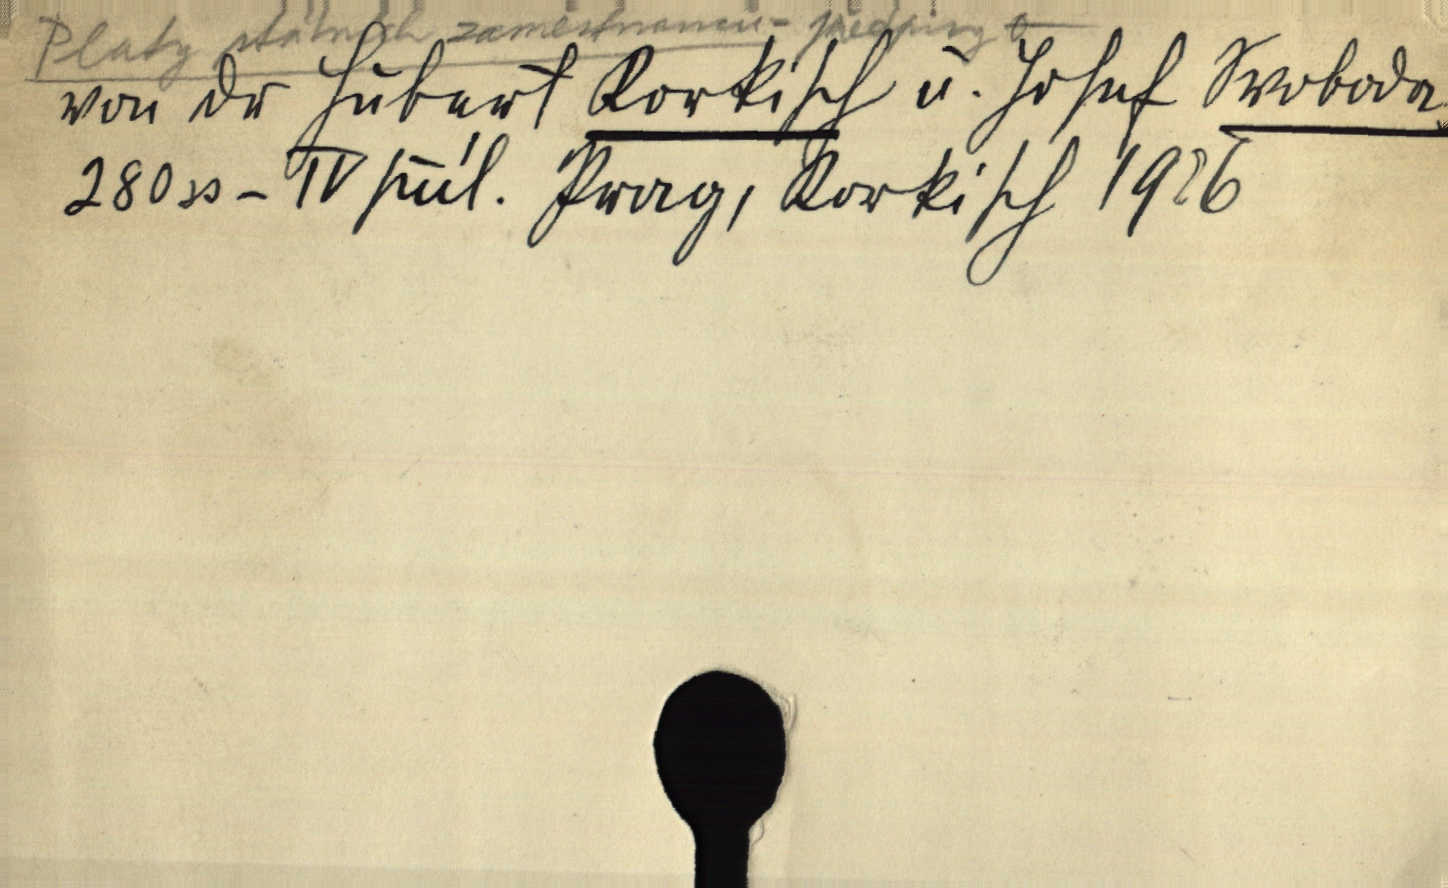 Platy státních zaměstnanců - předpisy o
von Dr Hubert Korkisch u. Josef Swoboda.
280 ss - IV příl. Prag, Korkisch 1926